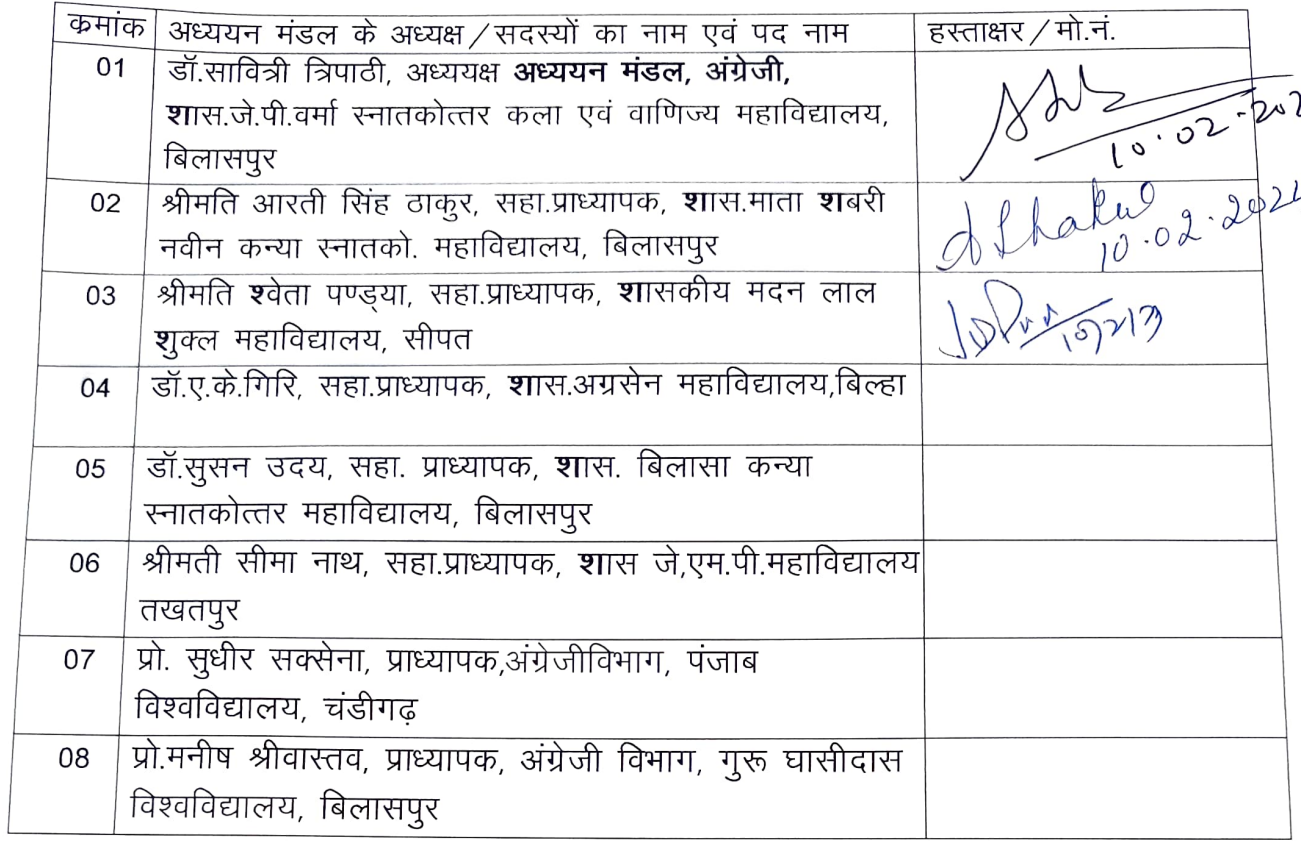 क्रमांक अध्ययन मंडल के अध्यक्ष/सदस्यों का नाम एवं पद नाम हस्ताक्षर/मो.नं.
01 डॉ.सावित्री त्रिपाठी, अध्ययक्ष अध्ययन मंडल, अंग्रेजी,
शास.जे.पी.वर्मा स्नातकोत्तर कला एवं वाणिज्य महाविद्यालय,
बिलासपुर
10.02.202
02 श्रीमति आरती सिंह ठाकुर, सहा.प्राध्यापक, शास.माता शबरी
नवीन कन्या स्नातको. महाविद्यालय, बिलासपुर
10.02.202
03 श्रीमति श्वेता पण्ड्या, सहा.प्राध्यापक, शासकीय मदन लाल
शुक्ल महाविद्यालय, सीपत
04 डॉ.ए.के.गिरि, सहा.प्राध्यापक, शास.अग्रसेन महाविद्यालय,बिल्हा
05 डॉ.सुसन उदय, सहा. प्राध्यापक, शास. बिलासा कन्या
स्नातकोत्तर महाविद्यालय, बिलासपुर
06 श्रीमती सीमा नाथ, सहा.प्राध्यापक, शास जे,एम.पी.महाविद्यालय
तखतपुर
07 प्रो. सुधीर सक्सेना, प्राध्यापक,अंग्रेजीविभाग, पंजाब
विश्वविद्यालय, चंडीगढ़
08 प्रो.मनीष श्रीवास्तव, प्राध्यापक, अंग्रेजी विभाग, गुरू घासीदास
विश्वविद्यालय, बिलासपुर